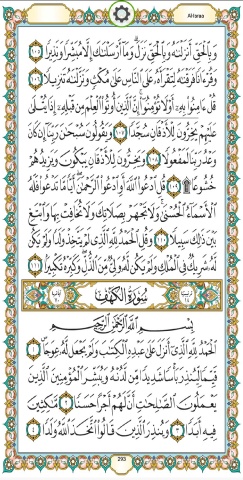 Al-Israa
وَبِالْحَقِّ أَنزَلْنَاهُ وَبِالْحَقِّ نَزَلَ ۗ وَمَا أَرْسَلْنَاكَ إِلَّا مُبَشِّرًا وَنَذِيرًا ١٠٥
وَقُرْءَانًا فَرَقْنَاهُ لِتَقْرَأَهُ عَلَى النَّاسِ عَلَىٰ مُكْثٍ وَنَزَّلْنَاهُ تَنزِيلًا ١٠٦
قُلْ ءَامِنُوا بِهِ أَوْ لَا تُؤْمِنُوا ۚ إِنَّ الَّذِينَ أُوتُوا الْعِلْمَ مِن قَبْلِهِ إِذَا يُتْلَىٰ
عَلَيْهِمْ يَخِرُّونَ لِلْأَذْقَانِ سُجَّدًا ١٠٧ وَيَقُولُونَ سُبْحَانَ رَبِّنَا إِن كَانَ
وَعْدُ رَبِّنَا لَمَفْعُولًا ١٠٨ وَيَخِرُّونَ لِلْأَذْقَانِ يَبْكُونَ وَيَزِيدُهُمْ
خُشُوعًا ۩ ١٠٩ قُلِ ادْعُوا اللَّهَ أَوِ ادْعُوا الرَّحْمَٰنَ ۖ أَيًّا مَّا تَدْعُوا فَلَهُ
الْأَسْمَاءُ الْحُسْنَىٰ ۚ وَلَا تَجْهَرْ بِصَلَاتِكَ وَلَا تُخَافِتْ بِهَا وَابْتَغِ
بَيْنَ ذَٰلِكَ سَبِيلًا ١١٠ وَقُلِ الْحَمْدُ لِلَّهِ الَّذِي لَمْ يَتَّخِذْ وَلَدًا وَلَمْ يَكُن
لَّهُ شَرِيكٌ فِي الْمُلْكِ وَلَمْ يَكُن لَّهُ وَلِيٌّ مِّنَ الذُّلِّ ۖ وَكَبِّرْهُ تَكْبِيرًا ١١١
سُورَةُ الْكَهْفِ
بِسْمِ اللَّهِ الرَّحْمَٰنِ الرَّحِيمِ
الْحَمْدُ لِلَّهِ الَّذِي أَنزَلَ عَلَىٰ عَبْدِهِ الْكِتَابَ وَلَمْ يَجْعَل لَّهُ عِوَجًا ۜ ١
قَيِّمًا لِّيُنذِرَ بَأْسًا شَدِيدًا مِّن لَّدُنْهُ وَيُبَشِّرَ الْمُؤْمِنِينَ الَّذِينَ
يَعْمَلُونَ الصَّالِحَاتِ أَنَّ لَهُمْ أَجْرًا حَسَنًا ٢ مَّاكِثِينَ
فِيهِ أَبَدًا ٣ وَيُنذِرَ الَّذِينَ قَالُوا اتَّخَذَ اللَّهُ وَلَدًا ٤
293